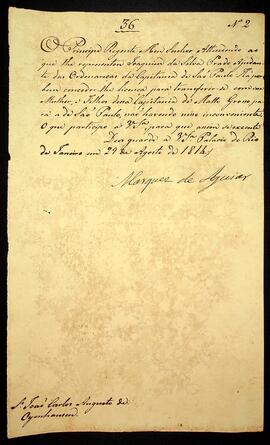 36
N 2
O Principe Regente Meu Senhor Attendendo ao
que lhe representou Joaquim da Silva Prado Ajudan
te das Ordenanças da Capitania de São Paulo Ha por
bem conceder lhe licença para transferir se com sua
Mulher, e Filhos da Capitania de Matto Grosso pa
ra a de São Paulo, não havendo nisso inconveniente.
O que participo a V.S.ª para que assim se execute
Deos guarde a V.S.ª Palacio do Rio
de Janeiro em 29 de Agosto de 1814
Marquez de Aguiar
S.r João Carlos Augusto de
Oyenhausen